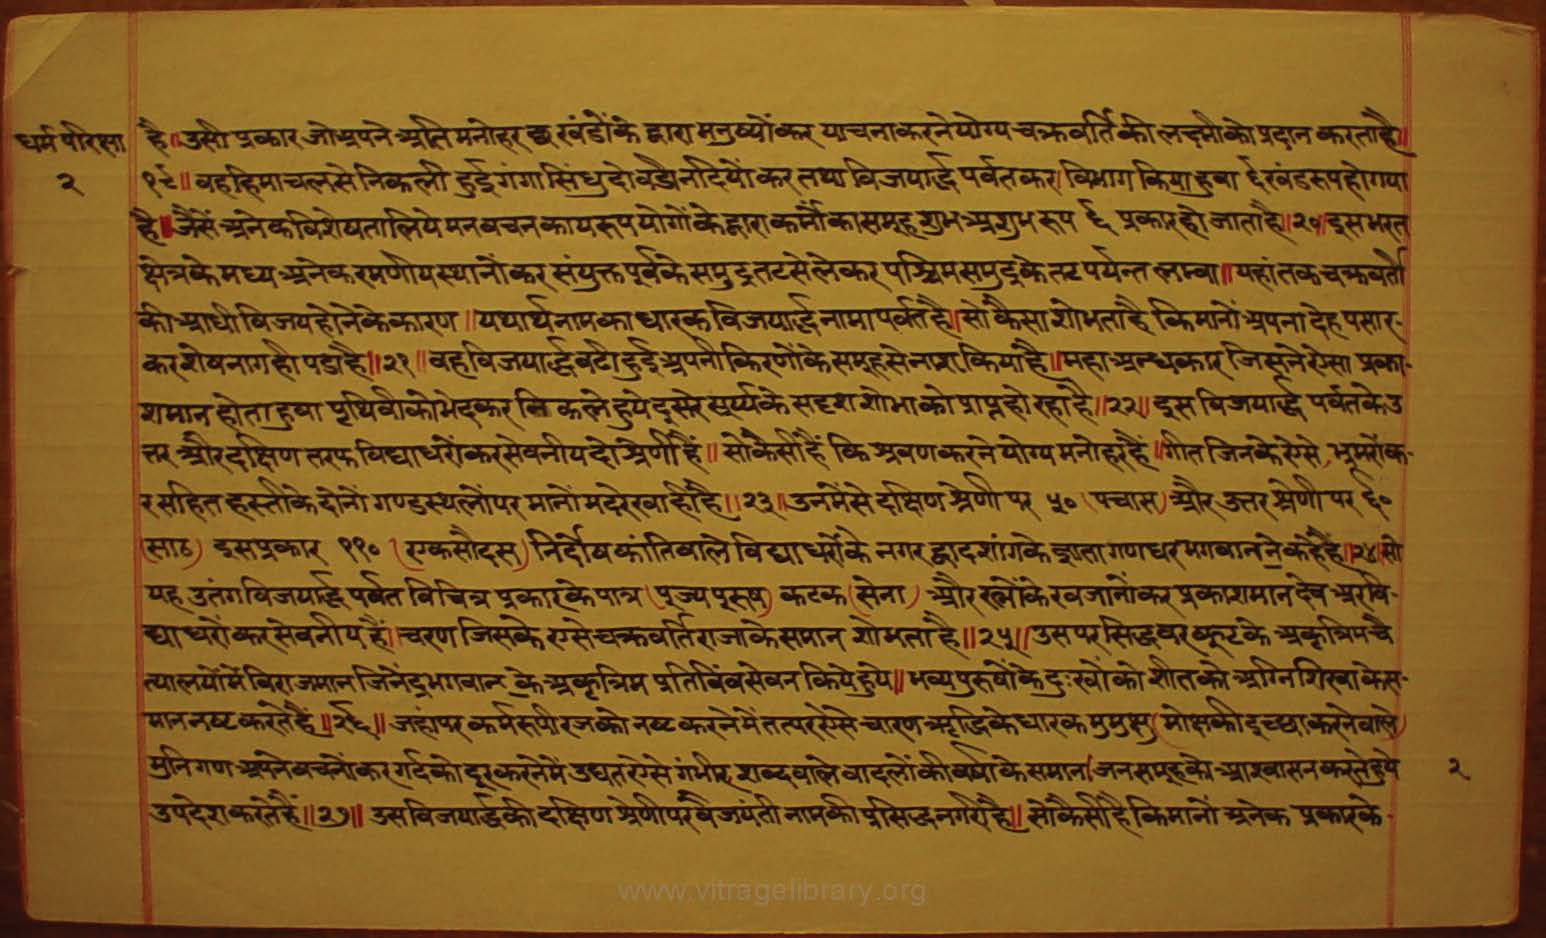 धर्म परिक्षा
२
है॥उसी प्रकार जो अपने अति मनोहर छ खंडोंके द्वारा मनुष्यों कर याचना करने योग्य चक्रवर्ति की लक्ष्मी को प्रदान करता है॥
१९॥ वह हिमाचल से निकली हुई गंगा सिंधु दो बडी नदियों कर तथा विजयार्द्ध पर्वत कर विभाग किया हुवा ६ खंड रुप हो गया
है॥जैसें अनेक विशेषता लिये मन वचन काय रुप योगों के द्वारा कर्मों का समूह शुभ अशुभ रुप ६ प्रकार हो जाता है॥२०॥इस भरत
क्षेत्र के मध्य अनेक रमणीय स्थानों कर संयुक्त पूर्व के समुद्र तट से लेकर पश्चिम समुद्र के तट पर्यन्त लम्बा॥यहां तक चक्रवर्ती
की आधी विजय होने के कारण॥यथार्थ नाम का धारक विजयार्द्ध नामा पर्वत है॥सो कैसा शोभता है कि मानों अपना देह पसार-
कर शेषनाग ही पडा है॥२१॥वह विजयार्द्ध बढी हुई अपनी किरणों के समूह से नाश किया है॥महा अन्धकार जिसने ऐसा प्रका-
शमान होता हुवा पृथिवी को भेद कर निकले हुये दूसरे सूर्य्य के सदृश शोभा को प्राप्त हो रहा है॥२२॥ इस विजयार्द्ध पर्वत के उ
त्तर और दक्षिण तरफ विद्याधरों कर सेवनीय दो श्रेणी हैं॥ सो कैसी हैं कि श्रवण करने योग्य मनोहर हैं॥गीत जिनके ऐसे, भ्रमरों क-
र सहित हस्ती के दोनों गण्डस्थलों पर मानों मद रेखा ही है॥२३॥उनमें से दक्षिण श्रेणी पर ५० (पचास) और उत्तर श्रेणी पर ६०
(साठ) इस प्रकार ११० (एक सौ दस) निर्दोष कांति वाले विद्याधरों के नगर द्वादशांग के ज्ञाता गणधर भगवान ने कहे हैं॥२४॥सो
यह उतंग विजयार्द्ध पर्वत विचित्र प्रकार के पात्र (पूज्य पुरुष) कटक (सेना) और रत्नों के खजानों कर प्रकाशमान देव अर वि-
द्याधरों कर सेवनीय हैं।चरण जिसके ऐसे चक्रवर्ति राजा के समान शोभता है॥२५॥उस पर सिद्धवर कूट के अकृत्रिम चै
त्यालयों में विराजमान जिनेंद्र भगवान के अकृत्रिम प्रतिबिंब सेवन किये हुये॥भव्य पुरुषों के दुःखों को शीत को अग्नि शिखा के स-
मान नष्ट करते हैं॥२६॥ जहां पर कर्म रुपी रज को नष्ट करने में तत्पर ऐसे चारण ऋद्धि के धारक मुमुक्षु (मोक्ष की इच्छा करने वाले)
मुनिगण अपने वचनों कर गर्द को दूर करने में उद्यत ऐसे गंभीर शब्द वाले बादलों की वर्षा के समान।जन समूह को आश्वासन करते हुये
२
उपदेश करते हैं॥२७॥ उस विजयार्द्ध की दक्षिण श्रेणी पर वैजयंती नाम की प्रसिद्ध नगरी है॥सो कैसी है कि मानों अनेक प्रकार के-
www.vitragelibrary.org